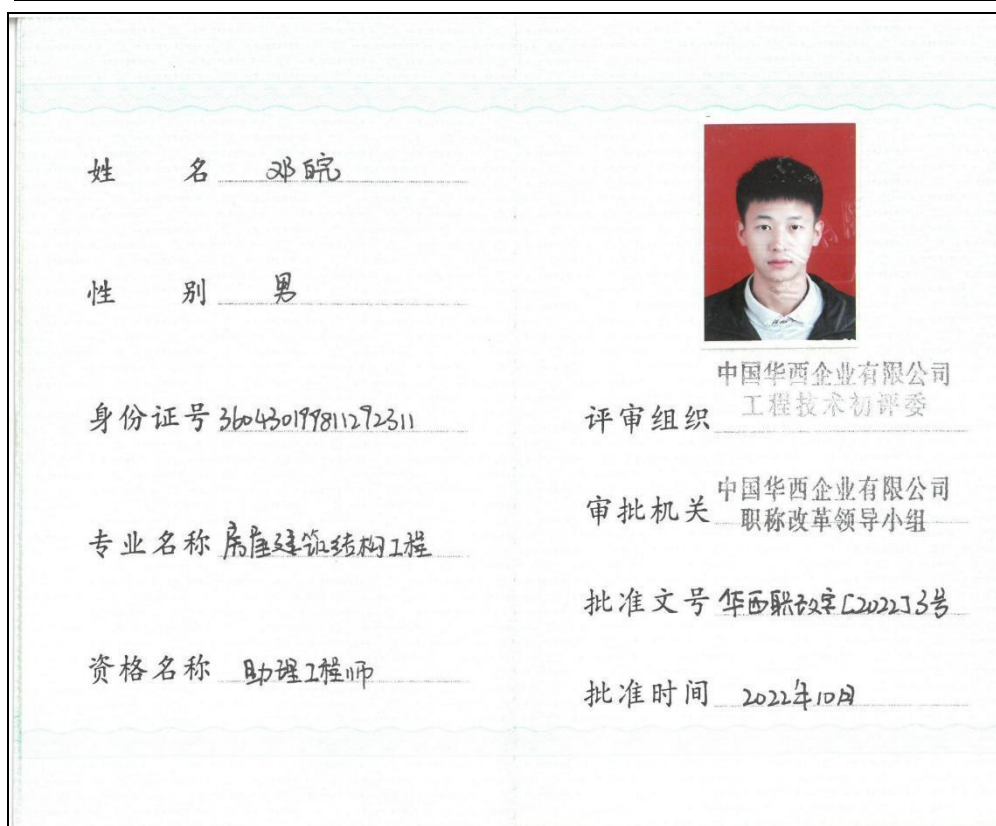 姓 名 邓皖
性 别 男
身份证号 360430199811292311
专业名称 房屋建筑结构工程
资格名称 助理工程师
中国华西企业有限公司
评审组织 工程技术初评委
中国华西企业有限公司
审批机关 职称改革领导小组
批准文号 华西职改字[2022]3号
批准时间 2022年10月